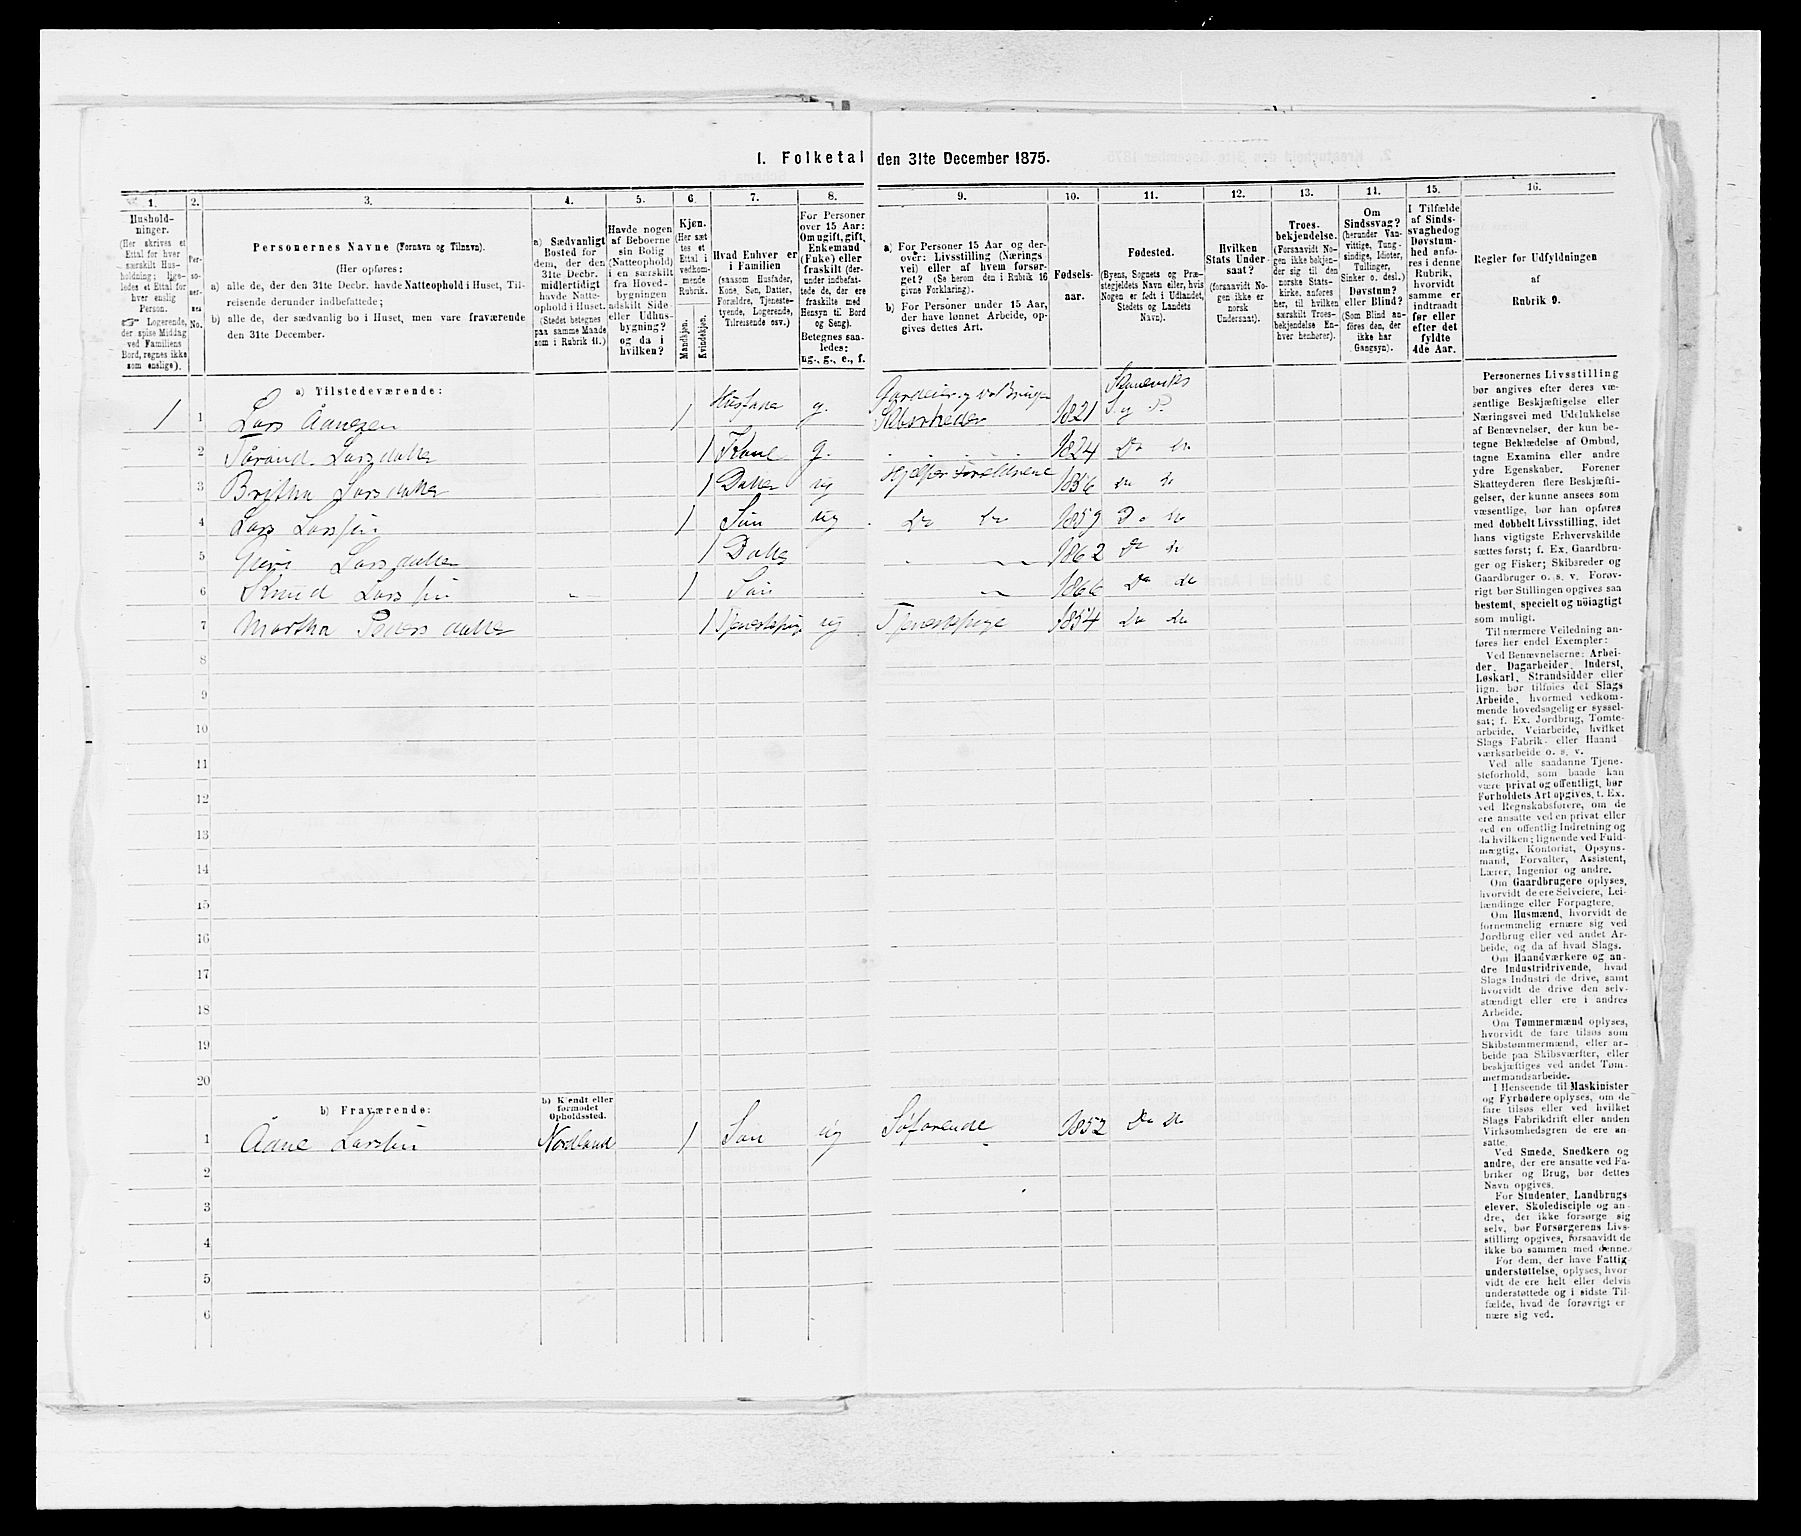 I. Folketal den 31te December 1875.
1. 2. 3. 4. 5. 6. 7. 8. 9. 10. 11. 12. 13. 14. 15. 16.
Hushold-
ninger.
(Her skrives et
Ettal for hver
særskilt Hus-
holdning; lige-
ledes et Ettal for
hver enslig
Person.
☞ Logerende,
der spise Middag
ved Familiens
Bord, regnes ikke
som enslige).
Per-
so-
ner-
nes
No.
Personernes Navne (Fornavn og Tilnavn).
(Her opføres:
a) alle de, der den 31te Decbr. havde Natteophold i Huset, Til-
reisende derunder indbefattede;
b) alle de, der sædvanlig bo i Huset, men vare fraværende
den 31te December.
a) Sædvanligt
Bosted for
dem, der den
31te Decbr.
midlertidigt
havde Natte-
ophold i Huset.
(Stedet betegnes
paa samme Maade
som i Rubrik 11.)
Havde nogen
af Beboerne
sin Bolig
(Natteophold)
i en særskilt
fra Hoved-
bygningen
adskilt Side
eller Udhus-
bygning?
og da i
hvilken?
Kjøn.
(Her sæt
tes et
Ettal i
vedkom-
mende
Rubrik.
Mandkjøn.
Kvindekjøn.
Hvad Enhver er
i Familien
(saasom Husfader,
Kone, Søn, Datter,
Forældre, Tjeneste-
tyende, Logerende,
Tilreisende osv.)
For Personer
over 15 Aar:
Om ugift, gift,
Enkemand
(Enke) eller
fraskilt (der-
under indbefat-
tede de, der ere
fraskilte med
Hensyn til Bord
og Seng).
Betegnes saa-
ledes:
ug., g., e., f.
a) For Personer 15 Aar og der-
over: Livsstilling (Nærings
vei) eller af hvem forsør-
get? (Se herom den i Rubrik 16
givne Forklaring).
b) For Personer under 15 Aar,
der have lønnet Arbeide, op-
gives dettes Art.
Fødsels-
aar.
Fødested.
(Byens, Sognets og Præ-
stegjeldets Navn eller, hvis
Nogen er født i Udlandet,
Stedets og Landets
Navn).
Hvilken
Stats Under-
saat?
(forsaavidt No-
gen ikke er
norsk
Undersaat).
Troes-
bekjendelse.
(Forsaavidt No-
gen ikke bekjen-
der sig til den
norske Stats-
kirke, anføres
her, til hvilken
særskilt Troes-
bekjendelse En-
hver henhører).
Om
Sindssvag?
(herunder Van-
vittige, Tung-
sindige, Idioter,
Tullinger,
Sinker o. desl.)
Døvstum?
eller Blind?
(Som Blind an-
føres den, der
ikke har
Gangsyn).
I Tilfælde
af Sinds-
svaghed og
Døvstum-
hed anfø-
res i denne
Rubrik,
hvorvidt
samme er
indtraadt
før eller
efter det
fyldte
4de Aar.
Regler for Udfyldningen
af
Rubrik 9.
a) Tilstedeværende:
1 1 Lars Aanesen 1 Husfader g. Gardeier og Selveier 1821 S. g P.
2 Larsdatter 1 Kone g. 1824 Do do
3 Britha Larsdatter 1 Datter ug Hjelper Forældrene 1856 do do
4 Lars Larssøn 1 Søn ug do do 1859 Do do
5 Guri Larsdatter 1 Datter 1862 Do do
6 Knud Larssøn 1 Søn 1866 Do do
7 Martha Pedersdatter 1 Tjenestepige ug Tjenestepige 1854 Do do
8
9
10
11
12
13
14
15
16
17
18
19
20
b) Fraværende:
b) Kjendt eller
formodet
Opholdssted.
1 Aane Larssøn Nordland 1 Søn ug Søfarende 1852 Do do
2
3
4
5
6
Personernes Livsstilling
bør angives efter deres væ-
sentlige Beskjæftigelse eller
Næringsvei med Udelukkelse
af Benævnelser, der kun be-
tegne Beklædelse af Ombud,
tagne Examina eller andre
ydre Egenskaber. Forener
Skatteyderen flere Beskjæfti-
gelser, der kunne ansees som
væsentlige, bør han opføres
med dobbelt Livsstilling, idet
hans vigtigste Erhvervskilde
sættes først; f. Ex. Gaardbru-
ger og Fisker; Skibsreder og
Gaardbruger o. s. v. Forøv-
rigt bør Stillingen opgives saa
bestemt, specielt og nöiagtigt
som muligt.
Til nærmere Veiledning an-
føres her endel Exempler:
Ved Benævnelserne: Arbei-
der, Dagarbeider, Inderst,
Løskarl, Strandsidder eller
lign. bør tilføies det Slags
Arbeide, hvormed vedkom-
mende hovedsagelig er syssel-
sat; f. Ex. Jordbrug, Tomte-
arbeide, Veiarbeide, hvilket
Slags Fabrik- eller Haand
værksarbeide o. s. v.
Ved alle saadanne Tjene-
steforhold, som baade kan
være privat og offentligt, bør
Forholdets Art opgives, t. Ex.
ved Regnskabsførere, om de
ere ansatte ved en privat eller
ved en offentlig Indretning og
da hvilken; lignende ved Fuld-
mægtig, Kontorist, Opsyns-
mand, Forvalter, Assistent,
Lærer, Ingeniør og andre.
Om Gaardbrugere oplyses,
hvorvidt de ere Selveiere, Lei-
lændinge eller Forpagtere.
Om Husmænd, hvorvidt de
fornemmelig ernære sig ved
Jordbrug eller ved andet Ar-
beide, og da af hvad Slags.
Om Haandværkere og an
dre Industridrivende, hvad
Slags Industri de drive, samt
hvorvidt de drive den selv-
stændigt eller ere i andres
Arbeide.
Om Tømmermænd oplyses,
hvorvidt de fare tilsøs som
Skibstømmermænd, eller ar-
beide paa Skibsværfter, eller
beskjæftiges ved andet Tøm-
mermandsarbeide.
I Henseende til Maskinister
og Fyrbødere oplyses, om de
fare tilsøs eller ved hvilket
Slags Fabrikdrift eller anden
Virksomhedsgren de ere an-
satte.
Ved Smede, Snedkere og
andre, der ere ansatte ved Fa-
briker og Brug, bør dettes
Navn opgives.
For Studenter, Landbrugs
elever, Skoledisciple og an-
dre, der ikke forsørge sig
selv, bør Forsørgerens Livs-
stilling opgives, forsaavidt de
ikke bo sammen med denne.
For dem, der have Fattig
understøttelse, oplyses, hvor
vidt de ere helt eller delvis
understøttede og i sidste Til-
fælde, hvad de forøvrigt er
nære sig ved.